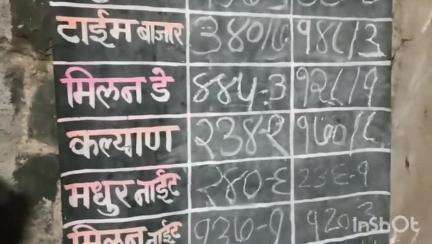 टाईम बाजार ३४०/८ १४८/३
मिलन डे ४४५:३ १२८/१
कल्याण २३४-९ १७०/८
मधुर नाईट २४०-६ २३६-१
मिलन नाईट १३७-१ १२०-३
InShot